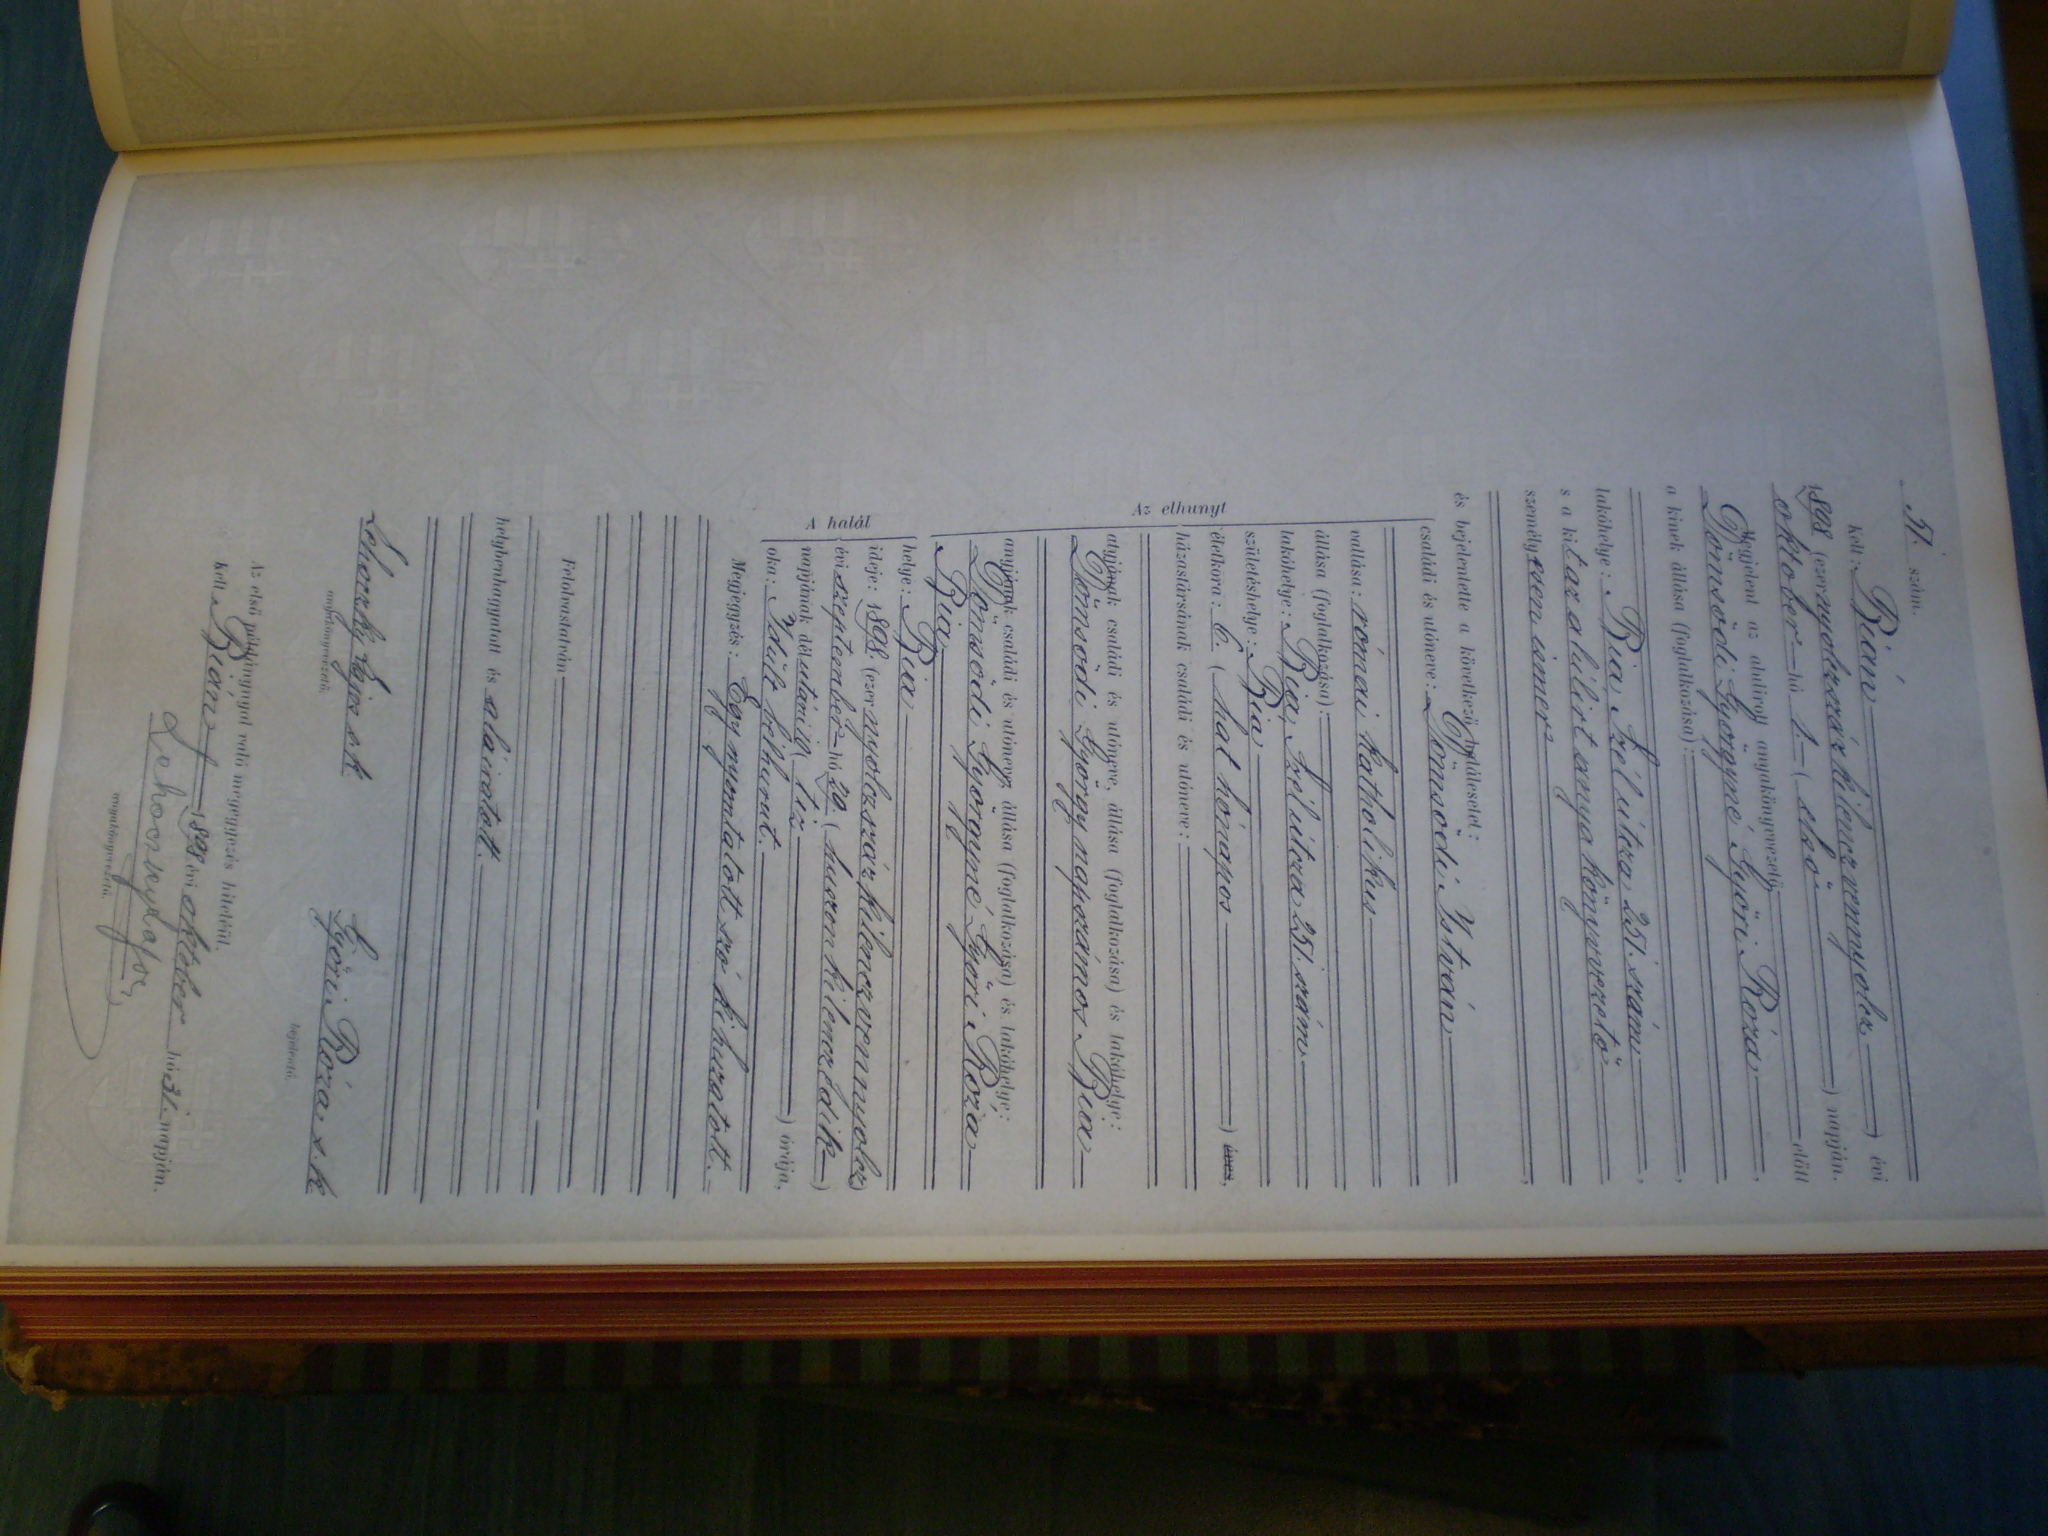 szám.
Kelt: Bián (ezernyolczszázkilenczvennyolcz) évi
1898
október hó 1. (első) napján.
Megjelent az alulirott anyakönyvvezető előtt
Dömsödi Györgyné Győri Róza,
a kinek állása (foglalkozása):
lakóhelye: Bia, Szél utcza 251. szám,
s a kit az alulirt anyakönyvvezető
személyesen ismer,
és bejelentette a következő halálesetet:
Az elhunyt
családi és utóneve: Dömsödi István
vallása: római katholikus
állása (foglalkozása):
lakóhelye: Bia, Szél utcza 251. szám
születéshelye: Bia
életkora: 6. (hat hónapos) éves,
házastársának családi és utóneve:
atyjának családi és utóneve, állása (foglalkozása) és lakóhelye:
Dömsödi György napszámos Bia
anyjának családi és utóneve, állása (foglalkozása) és lakóhelye:
Dömsödi Györgyné Győri Róza
Bia
A halál
helye: Bia
ideje: 1898. (ezernyolczszázkilenczvennyolcz)
évi szeptember hó 29. (huszonkilenczedik)
napjának délutáni (tiz) órája,
oka: Idült bélhurut.
Megjegyzés: Egy nyomtatott szó kihuzatott.
Felolvastatván,
helybenhagyatott és aláiratott.
Lehoczky Lajos s.k.
anyakönyvvezető.
Győri Róza s. k.
bejelentő.
Az első példánynyal való megegyezés hiteléül.
Kelt Bián 1898 évi október hó 31. napján.
Lehoczky Lajos
anyakönyvvezető.